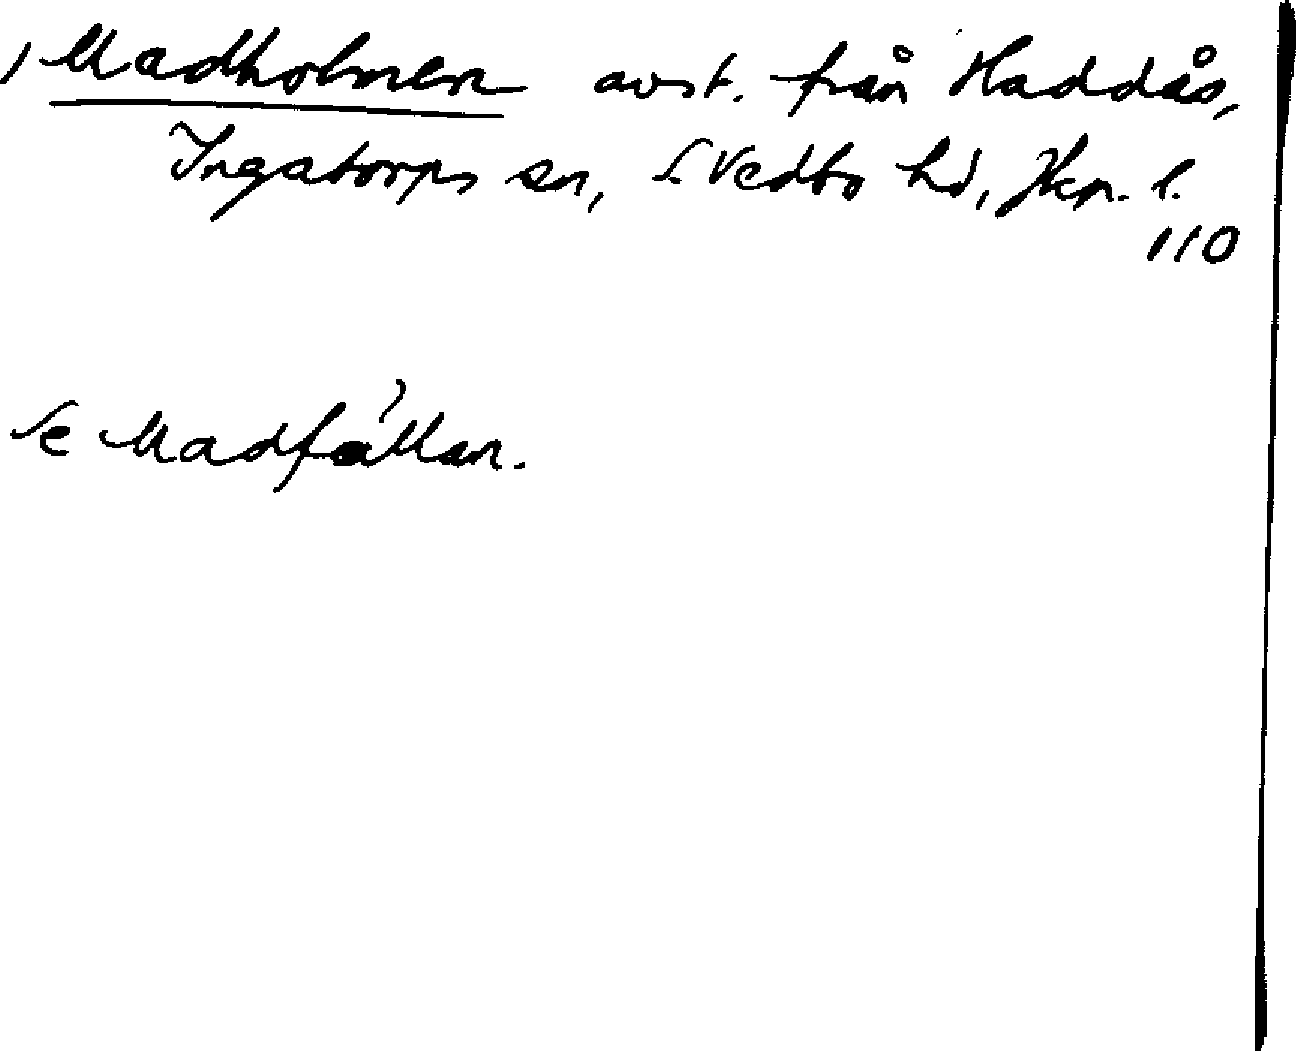 Madholmen avst. från Haddås,
Ingatorps sn, S. Vedbo hd, Jkp. l.
110
Se Madfållan.